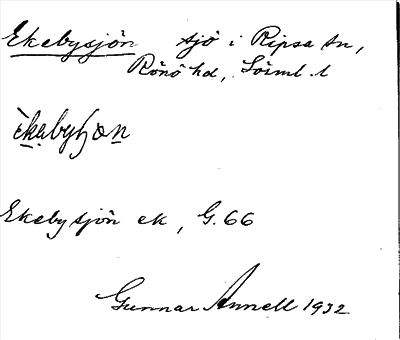 Ekebysjön sjö i Ripsa sn,
Rönö hd, Sörml. l
Ekebysjön ek, G. 66
Gunnar Annell 1932